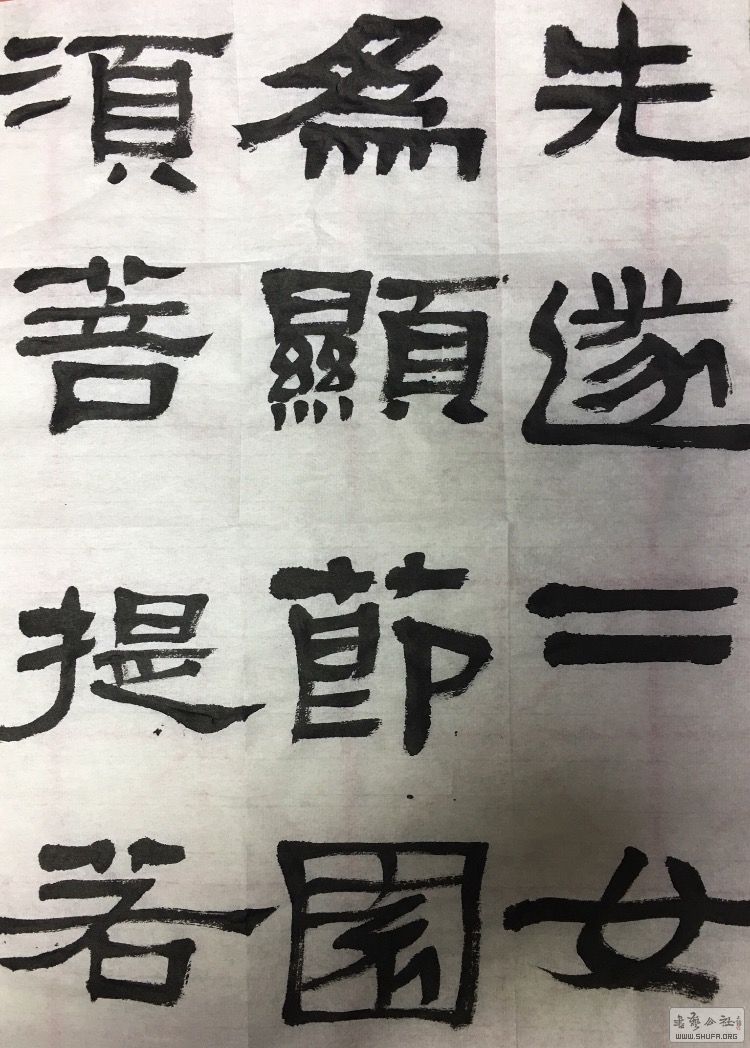 先遂二女
爲顯節
須菩提若
書藝公社
WWW.SHUFA.ORG